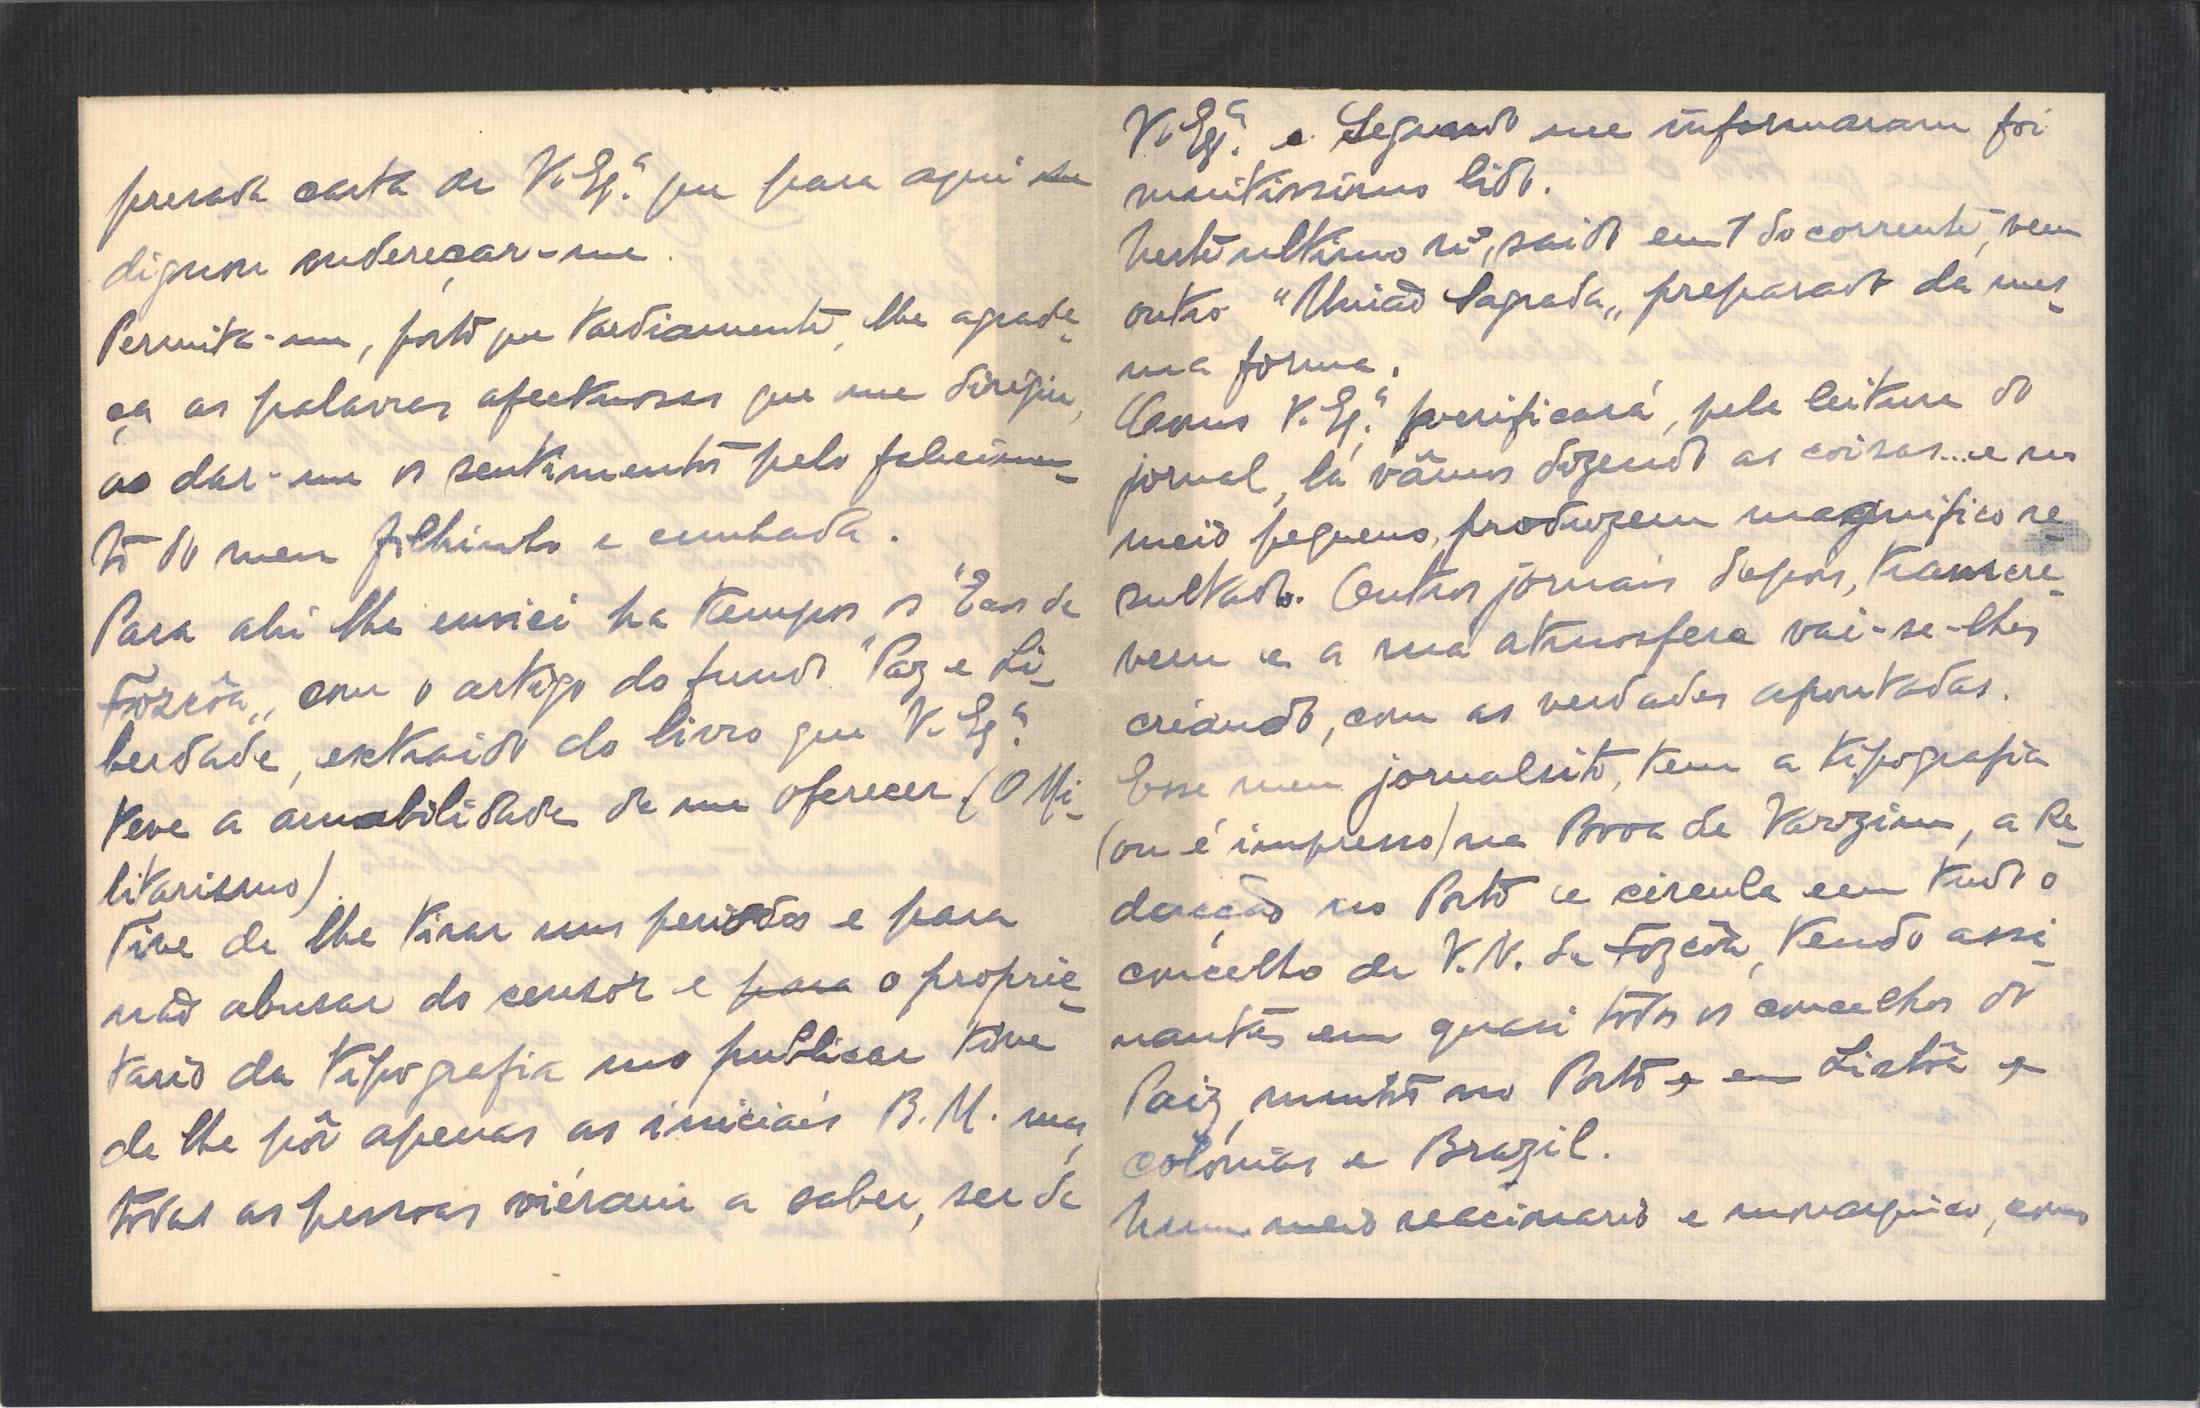 presada carta de V. Exª. que para aqui se
dignou endereçar-me.
Permita-me, pôsto que tardiamente, lhe agrade-
ça as palavras afectuosas que me dirigiu,
ao dar-me os sentimentos pelo falecimen-
to do meu filhinho e cunhada.
Para ahi lhe enviei ha tempos o "Ecos de
Fozcôa„ com o artigo do fundo "Paz e Li-
berdade, extraido do livro que V. Exª.
teve a amabilidade de me oferecer. (O Mi-
litarismo).
Tive de lhe tirar uns periodos e para
não abusar do censor e para o proprie-
tario da tipografia mo publicar tive
de lhe pôr apenas as iniciais B. M. mas,
tôdas as pessoas viéram a saber, ser de
V. Exª. e segundo me informaram foi
muitissimo lido.
Neste ultimo nº, saido em 1 do corrente, vem
outro "União Sagrada„ preparado da mes-
ma forma.
Como V. Exª. verificará, pela leitura do
jornal, lá vâmos dizendo as coisas... e no
meio pequeno, produzem magnifico re-
sultado. Outros jornais depois, transcre-
vem e a sua atmosfera vai-se-lhes
criando, com as verdades apontadas.
Esse meu jornalsito, tem a tipografia
(ou é impresso) na Povoa de Varzim, a Re-
dacção no Porto e circula em tudo o
concelho de V. N. de Fozcôa, tendo assi-
nantes em quasi todos os concelhos do
Paiz, muitos no Porto e em Lisbôa e
colonias e Brazil.
Num meio reacionario e monarquico, como